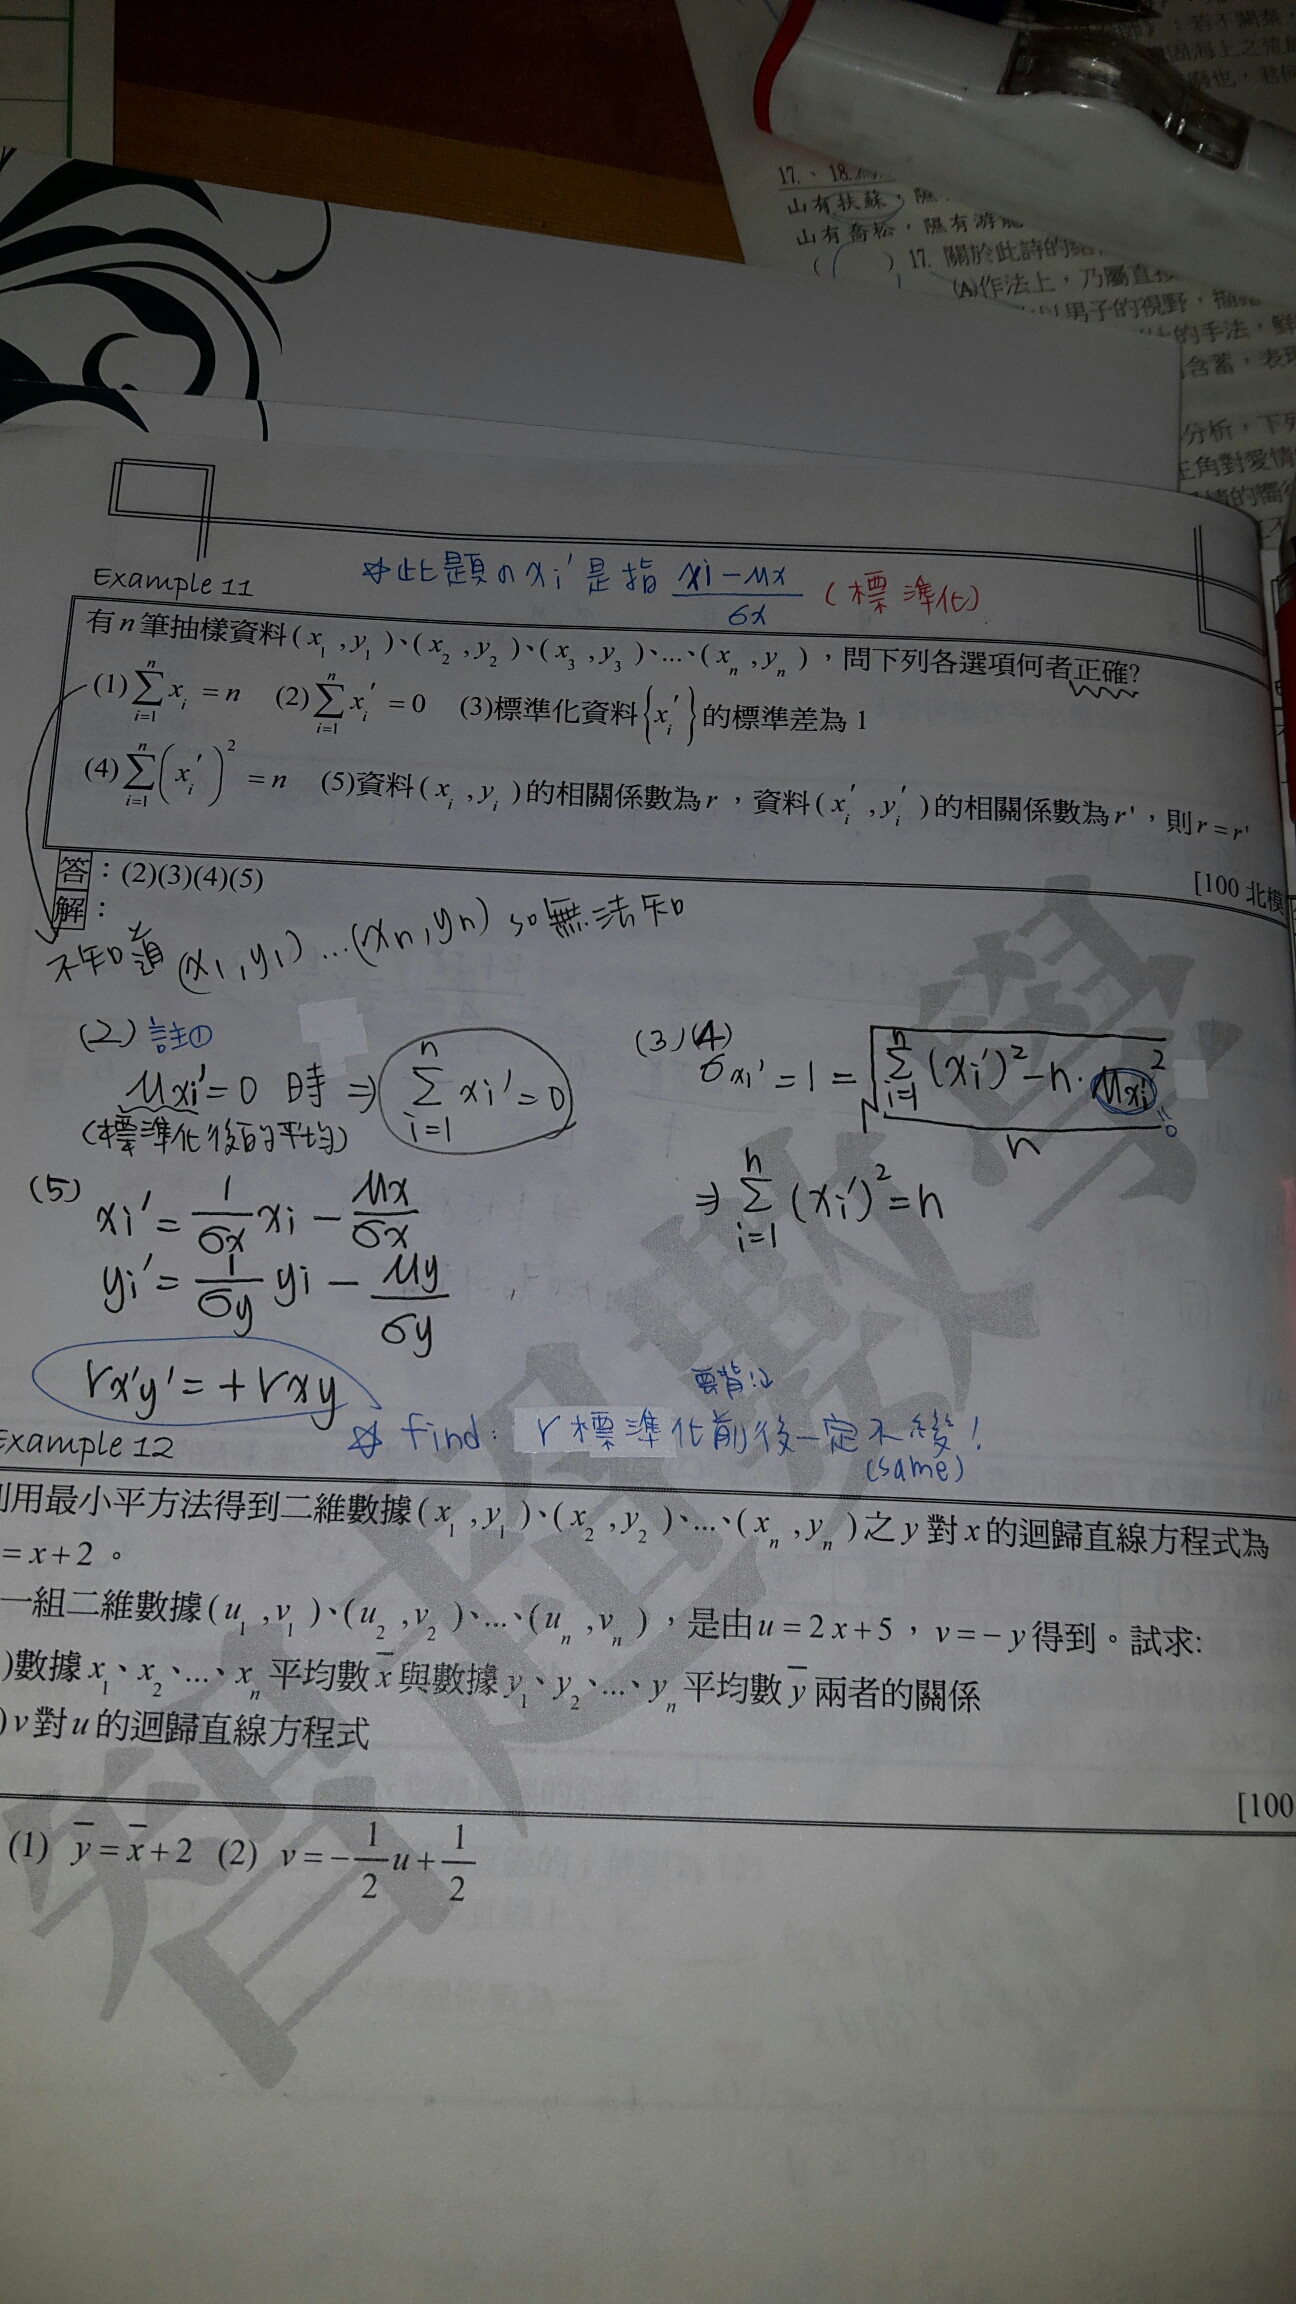 17.、18.
山有扶蘇，隰
山有喬松，隰有游龍
( ) 17. 關於此詩的
(A)作法上，乃屬直
以男子的視野，描
的手法，鮮
含蓄，表現
分析，下列
主角對愛情
Example 11
☆此題の xi′是指 (xi－μx)/σx (標準化)
有 n 筆抽樣資料(x₁,y₁)、(x₂,y₂)、(x₃,y₃)、…、(xₙ,yₙ)，問下列各選項何者正確?
(1)∑ᵢ₌₁ⁿ xᵢ = n (2)∑ᵢ₌₁ⁿ xᵢ′ = 0 (3)標準化資料{xᵢ′}的標準差為 1
(4)∑ᵢ₌₁ⁿ(xᵢ′)² = n (5)資料(xᵢ,yᵢ)的相關係數為 r，資料(xᵢ′,yᵢ′)的相關係數為 r'，則 r = r'
答：(2)(3)(4)(5)
[100 北模
解：
不知道(x₁,y₁)…(xn,yn) so 無法知
(2) 註①
μxi′=0 時 ⇒ ∑ᵢ₌₁ⁿ xi′=0
(標準化後的平均)
(3)(4)
σxi′=1=√((∑ᵢ₌₁ⁿ(xi′)²－n·μxi′²)/n)
0
⇒ ∑ᵢ₌₁ⁿ(xi′)²=n
(5) xi′=1/σx xi－μx/σx
yi′=1/σy yi－μy/σy
rx′y′=+rxy
要背!!
☆ find: r 標準化前後一定不變!
(same)
Example 12
利用最小平方法得到二維數據(x₁,y₁)、(x₂,y₂)、…、(xₙ,yₙ)之 y 對 x 的迴歸直線方程式為
= x+2。
一組二維數據(u₁,v₁)、(u₂,v₂)、…、(uₙ,vₙ)，是由 u = 2x+5，v = −y 得到。試求:
)數據 x₁、x₂、…、xₙ 平均數 x̄ 與數據 y₁、y₂、…、yₙ 平均數 ȳ 兩者的關係
)v 對 u 的迴歸直線方程式
[100
(1) ȳ = x̄+2 (2) v = −1/2 u + 1/2